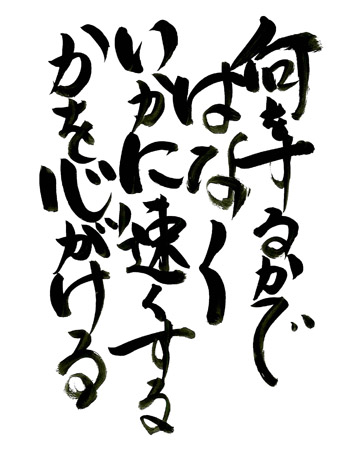 何をするかで
はなく
いかに速くする
かを心がける